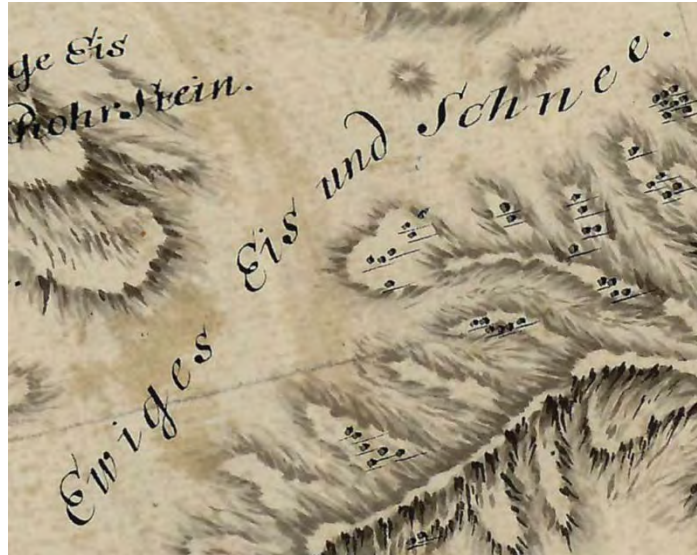 ge Eis
rohrstein.
Ewiges Eis und Schnee.